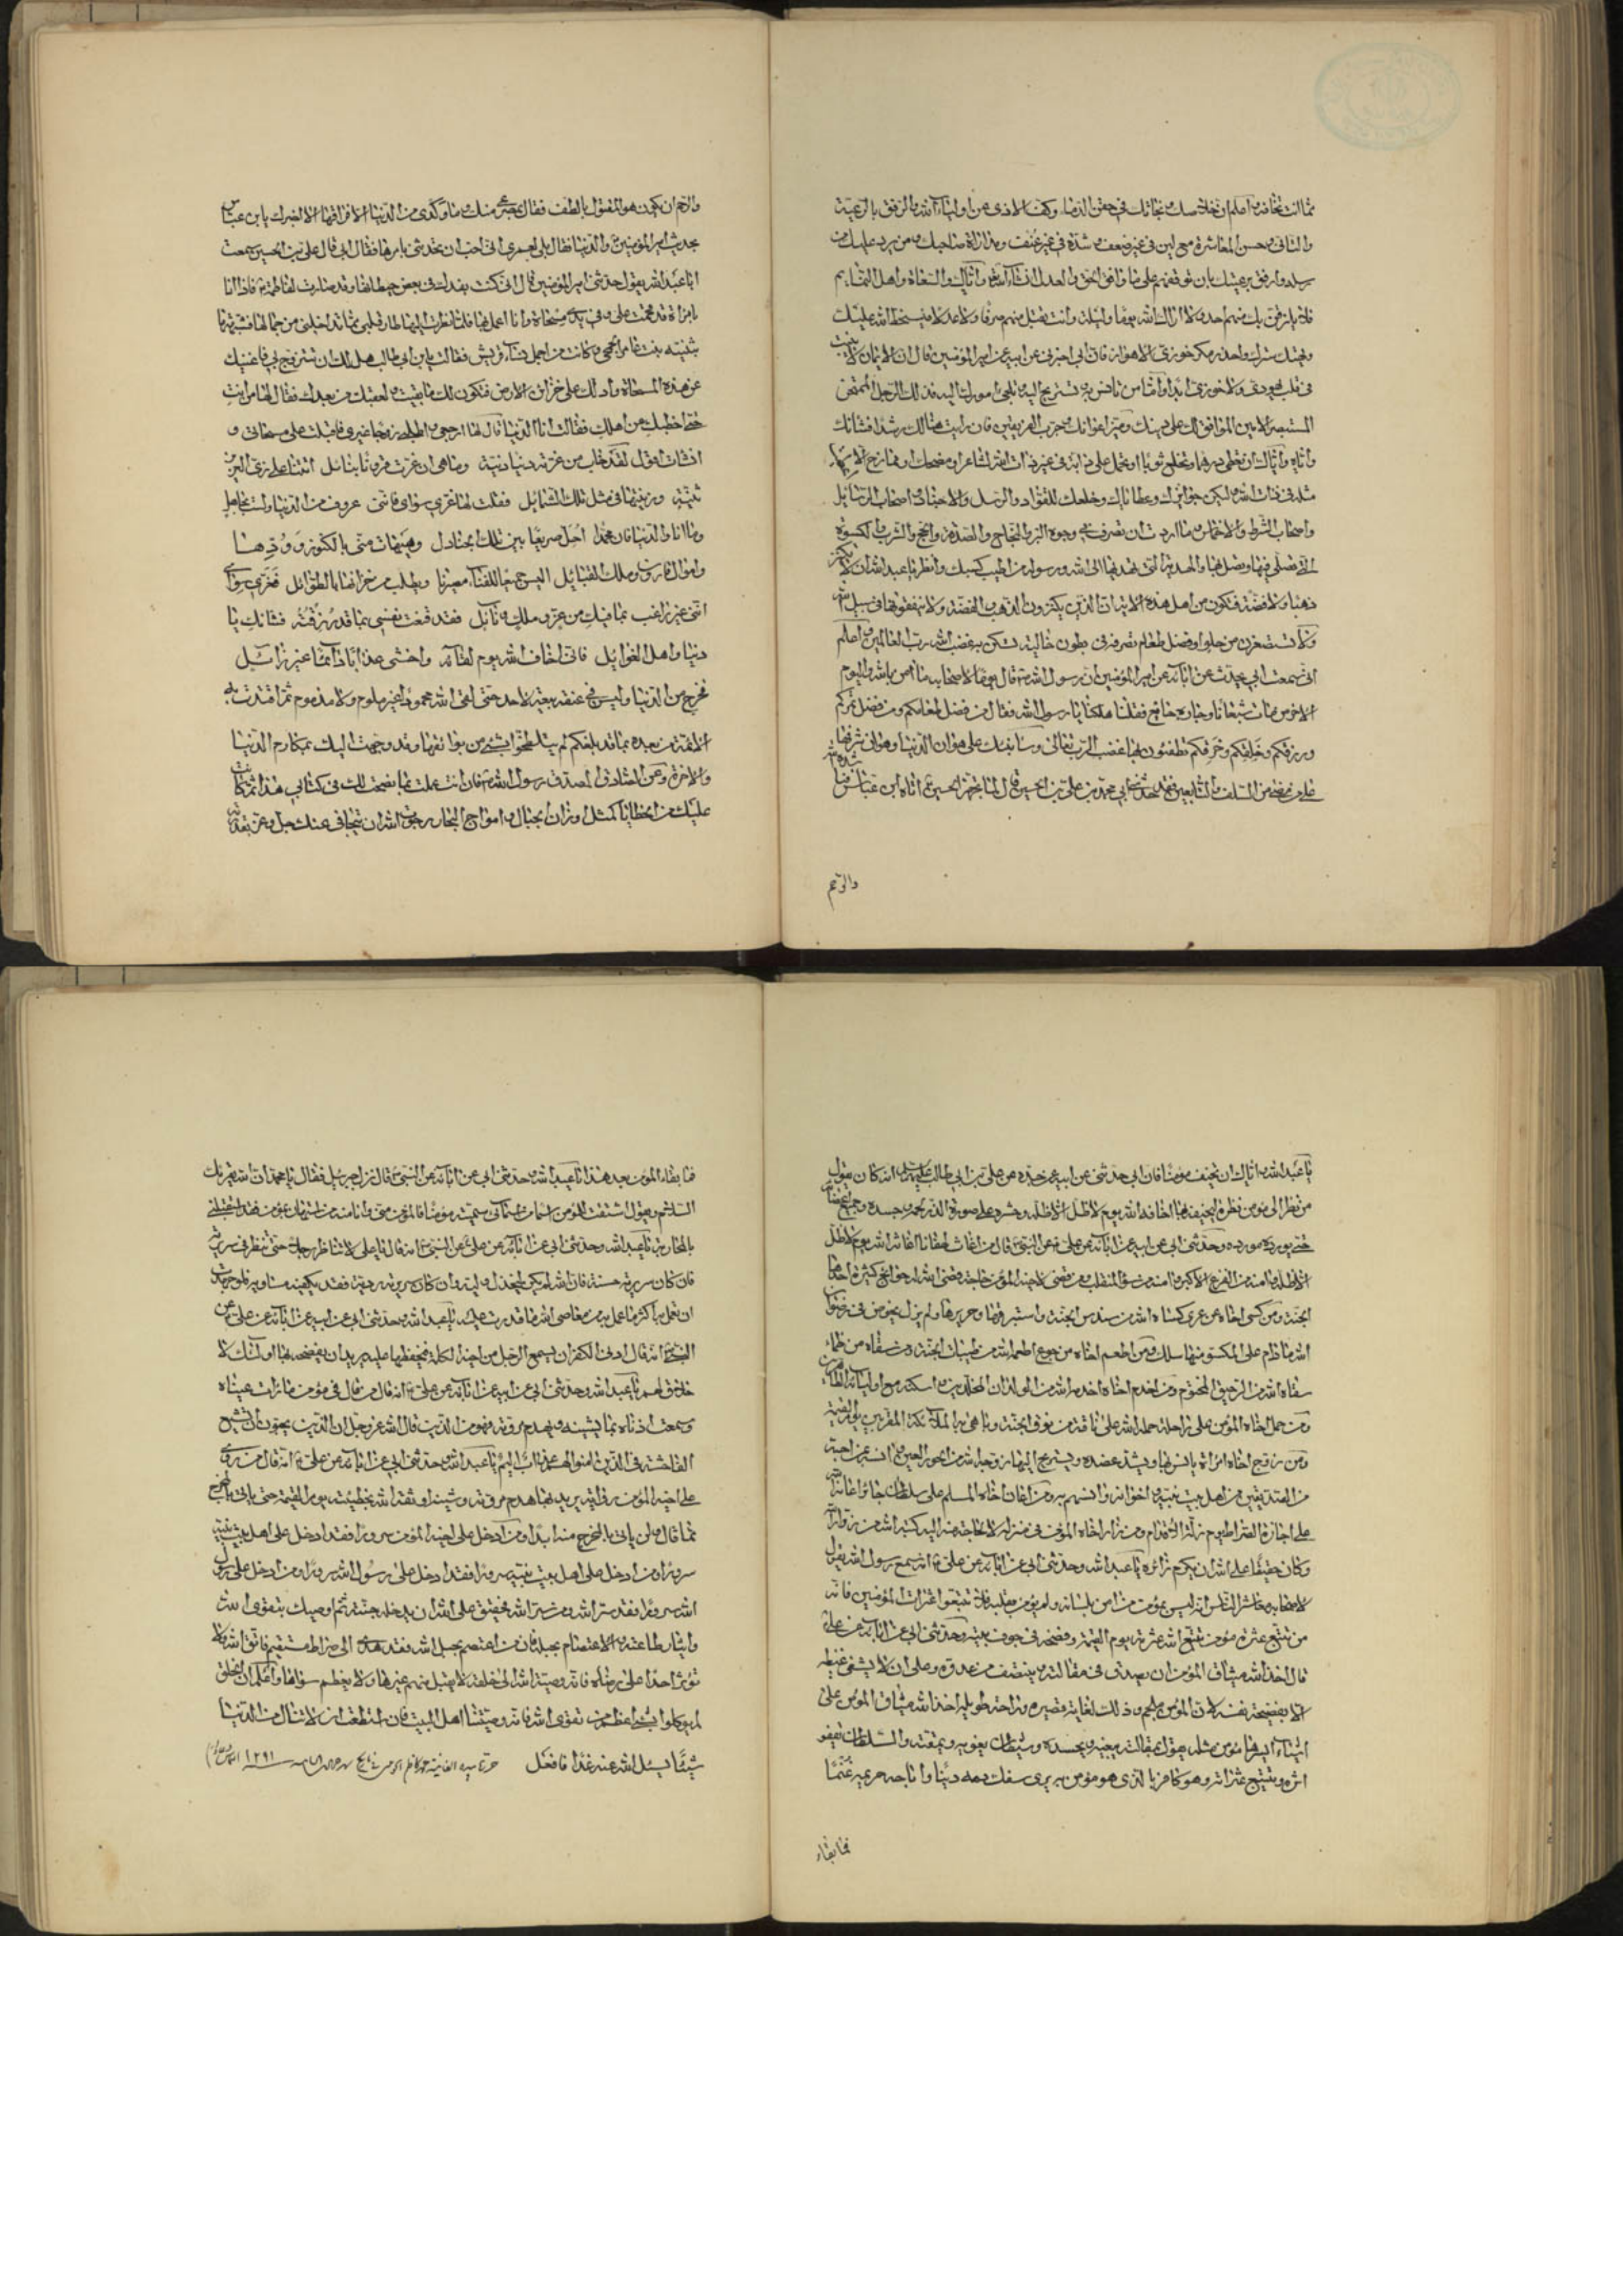 مما انت تخافه واعلم ان خلاصك ونجاتك في حقن الدماء وكف الاذى عن اولياء الله والرفق بالرعية
والتاني وحسن المعاشرة مع لين في غير ضعف وشدة في غير عنف ومداراة صاحبك ومن يرد عليك من
رسله وارفق برعيتك بان توقفهم على ما وافق الحق والعدل انشاء الله واياك والسعاة واهل النمايم
فلا يلزقن بك منهم احد ولا اراك الله يوما وليلة وانت تقبل منهم صرفا ولا عدلا فيسخط الله عليك
ويهتك سترك واحذر مكر خوزي الاهواز فان ابي اخبرني عن ابيه عن امير المؤمنين قال ان الايمان لا يثبت
في قلب يهودي ولا خوزي ابدا واما من تانس به وتستريح اليه وتلجئ امورك اليه فذلك الرجل الممتحن
المستبصر الامين الموافق لك على دينك وميز اعوانك وجرب الفريقين فان رايت هنالك رشدا فشانك
واياه واياك ان تعطي درهما وتخلع ثوبا او تحمل على دابة في غير ذات الله لشاعر او مضحك او ممازح الا اعطيت
مثله في ذات الله وليكن جوائزك وعطاياك وخلعك للقواد والرسل والاحفاد واصحاب الرسائل
واصحاب الشرط والاخماس وما اردت ان تصرف في وجوه البر والنجاح والصدقة والحج والشرب والكسوة
التي تصلي فيها وتصل بها والهدية التي تهديها الى الله ورسوله من اطيب كسبك وانظر يا عبد الله ان لا تكنز
ذهبا ولا فضة فتكون من اهل هذه الاية ان الذين يكنزون الذهب والفضة ولا ينفقونها في سبيل الله
ولا تستصغرن من حلو او فضل طعام تصرفه في بطون خالية تسكن به غضب الله رب العالمين واعلم
اني سمعت ابي يحدث عن ابائه عن امير المؤمنين ان رسول الله ص قال يوما لاصحابه ما امن بالله واليوم
الاخر من بات شبعانا وجاره جائع فقلنا هلكنا يا رسول الله فقال من فضل طعامكم ومن فضل تمركم
ورزقكم وخلقكم وخرقكم تطفئون بها غضب الرب تعالى وسانبئك على هوان الدنيا وهوان شرفها
على من مضى من السلف والتابعين فقد حدثني ابي محمد بن علي بن الحسين قال لما تجهز الحسين ع اتاه ابن عباس فناشده الله
والرحم
والرحم ان يكون هو المقتول بالطف فقال بمصرعي منك وما وكدي من الدنيا الا فراقها الا اخبرك يا بن عباس
بحديث امير المؤمنين والدنيا فقال بلى لعمري اني احب ان تحدثني بامرها فقال ابي قال علي بن الحسين سمعت
ابا عبد الله يقول حدثني امير المؤمنين قال اني كنت بفدك في بعض حيطانها وقد صارت لفاطمة ع فاذا انا
بامراة قد هجمت علي وفي يدي مسحاة وانا اعمل بها فلما نظرت اليها طار قلبي مما تداخلني من جمالها فشبهتها
بثينة بنت عامر الجمحي وكانت من اجمل نساء قريش فقالت يا بن ابي طالب هل لك ان تتزوج بي فاغنيك
عن هذه المسحاة وادلك على خزائن الارض فتكون لك ما بقيت ولعقبك من بعدك فقال لها من انت
حتى اخطبك من اهلك فقالت انا الدنيا قال لها ارجعي واطلبي زوجا غيري فاقبلت على مسحاتي و
انشات اقول لقد خاب من غرته دنيا دنية وما هي ان غرت قرونا بنائل اتتنا على زي العزيز
بثينة وزينتها في مثل تلك الشمايل فقلت لها غري سواي فانني عزوف من الدنيا ولست بجاهل
وما انا والدنيا فان محمدا احل صريعا بين تلك الجنادل وهيهات مني بالكنوز وودها
واموال قارون وملك القبائل اليس جميعا للفناء مصيرنا ويطلب من خزانها بالطوائل فغري سواي
انني غير راغب بما فيك من عز وملك ونائل فقد قنعت نفسي بما قد رزقته فشانك يا
دنيا واهل الغوائل فاني اخاف الله يوم لقائه واخشى عذابا دائما غير زائل
فخرج من الدنيا وليس في عنقه بيعة لاحد حتى لقى الله محمودا غير ملوم ولا مذموم ثم اقتدت به
الائمة من بعده بما قد بلغكم لم يتلطخوا بشيء من بوائقها وقد وجهت اليك بمكارم الدنيا
والاخرة وعن الصادق المصدق رسول الله ص فان انت عملت بما نصحت لك في كتابي هذا ثم كانت
عليك من الخطايا كمثل اوزان الجبال وامواج البحار رجوت الله ان يتجافى عنك جل وعز بقدرته
يا عبد الله واياك ان تخيف مؤمنا فان ابي حدثني عن ابيه عن جده عن علي بن ابي طالب عليهم السلام انه كان يقول
من نظر الى مؤمن نظرة ليخيفه بها اخافه الله يوم لا ظل الا ظله وحشره على صورة الذر لحمه وجسده وجميع اعضائه
حتى يورده مورده وحدثني ابي عن ابيه عن ابائه عن علي ع عن النبي ص قال من اغاث لهفانا اغاثه الله يوم لا ظل
الا ظله وامنه من الفزع الاكبر وامنه من سوء المنقلب ومن قضى لاخيه المؤمن حاجة قضى الله له حوائج كثيرة احدها
الجنة ومن كسى اخاه من عري كساه الله من سندس الجنة واستبرقها وحريرها ولم يزل يخوض في رضوان
الله ما دام على المكسو منها سلك ومن اطعم اخاه من جوع اطعمه الله من طيبات الجنة ومن سقاه من ظماء
سقاه الله من الرحيق المختوم ومن اخدم اخاه اخدمه الله من الولدان المخلدين واسكنه مع اوليائه الطاهرين
ومن حمل اخاه المؤمن على راحلة حمله الله على ناقة من نوق الجنة وباهى به الملائكة المقربين يوم القيمة
ومن زوج اخاه امراة يانس بها ويشد عضده ويستريح اليها زوجه الله من الحور العين وانسه بمن احبه
من الصديقين من اهل بيت نبيه واخوانه وانسهم به ومن اعان اخاه المسلم على سلطان جائر اعانه الله
على اجازة الصراط يوم زلة الاقدام ومن زار اخاه المؤمن في منزله لا لحاجة منه اليه كتبه الله من زوار الله
وكان حقيقا على الله ان يكرم زائره يا عبد الله وحدثني ابي عن ابائه عن علي ع انه سمع رسول الله يقول
لاصحابه معاشر الناس انه ليس بمؤمن من امن بلسانه ولم يؤمن بقلبه فلا تتبعوا عثرات المؤمنين فانه
من تتبع عثرة مؤمن تتبع الله عثرته يوم القيمة وفضحه في جوف بيته وحدثني ابي عن ابائه عن علي ع
قال اخذ الله ميثاق المؤمن ان لا يصدق في مقالته ولا ينتصف من عدوه وعلى ان لا يشفى غيظه
الا بفضيحة نفسه لان المؤمن ملجم وذلك لغاية قصيرة وراحة طويلة اخذ الله ميثاق المؤمن على
اشياء ايسرها مؤمن مثله يقول بمقالته يبغيه ويحسده وشيطان يغويه ويمقته والسلطان يقفو
اثره ويتبع عثراته وهو كافر بالذي هو مؤمن به يرى سفك دمه دينا واباحه حريمه غنما
فما بقاء
فما بقاء المؤمن بعد هذا يا عبد الله وحدثني ابي عن ابائه عن النبي ص قال نزل جبرئيل فقال يا محمد ان الله يقرئك
السلام ويقول اشتققت للمؤمن اسما من اسمائي سميته مؤمنا فالمؤمن مني وانا منه من استهان بمؤمن فقد استقبلني
بالمحاربة يا عبد الله وحدثني ابي عن ابائه عن علي ع عن النبي ص انه قال يا علي لا تناظر رجلا حتى تنظر في سريرته
فان كان سريرته حسنة فان الله لم يكن ليخذل وليه وان كان سريرته ردية فقد يكفيه مساويه فلو جهدت
ان تعمل به اكثر ما عمل به من معاصي الله ما قدرت عليه يا عبد الله وحدثني ابي عن ابيه عن ابائه عن علي ع عن
النبي ص انه قال ادنى الكفر ان يسمع الرجل من اخيه الكلمة فيحفظها عليه يريد ان يفضحه بها اولئك لا
خلاق لهم يا عبد الله وحدثني ابي عن ابيه عن ابائه عن علي ع انه قال من قال في مؤمن ما رات عيناه
وسمعت اذناه ما يشينه ويهدم مروته فهو من الذين قال الله عز وجل ان الذين يحبون ان تشيع
الفاحشة في الذين امنوا لهم عذاب اليم يا عبد الله وحدثني ابي عن ابائه عن علي ع انه قال من روى
على اخيه المؤمن رواية يريد بها هدم مروته وشينه اوثقه الله بخطيئته يوم القيمة حتى ياتي بالمخرج
مما قال ولن ياتي بالمخرج منه ابدا ومن ادخل على اخيه المؤمن سرورا فقد ادخل على اهل بيت نبيه
سرورا ومن ادخل على اهل بيت نبيه سرورا فقد ادخل على رسول الله سرورا ومن ادخل على رسول
الله سرورا فقد سر الله ومن سر الله فحقيق على الله ان يدخله جنته ثم اوصيك بتقوى الله
وايثار طاعته والاعتصام بحبله فان من اعتصم بحبل الله فقد هدى الى صراط مستقيم فاتق الله ولا
تؤثر احدا على رضاه فانه وصية الله الى خلقه لا يقبل منهم غيرها ولا يعظم سواها واعلم ان الخلق
لم يوكلوا بشيء اعظم من تقوى الله فانه وصيتنا اهل البيت فان استطعت ان لا تنال من الدنيا
شيئا يسئل الله عنه غدا فافعل حرر بيده الفانية محمد كاظم في تاريخ سنة ١٢٩١